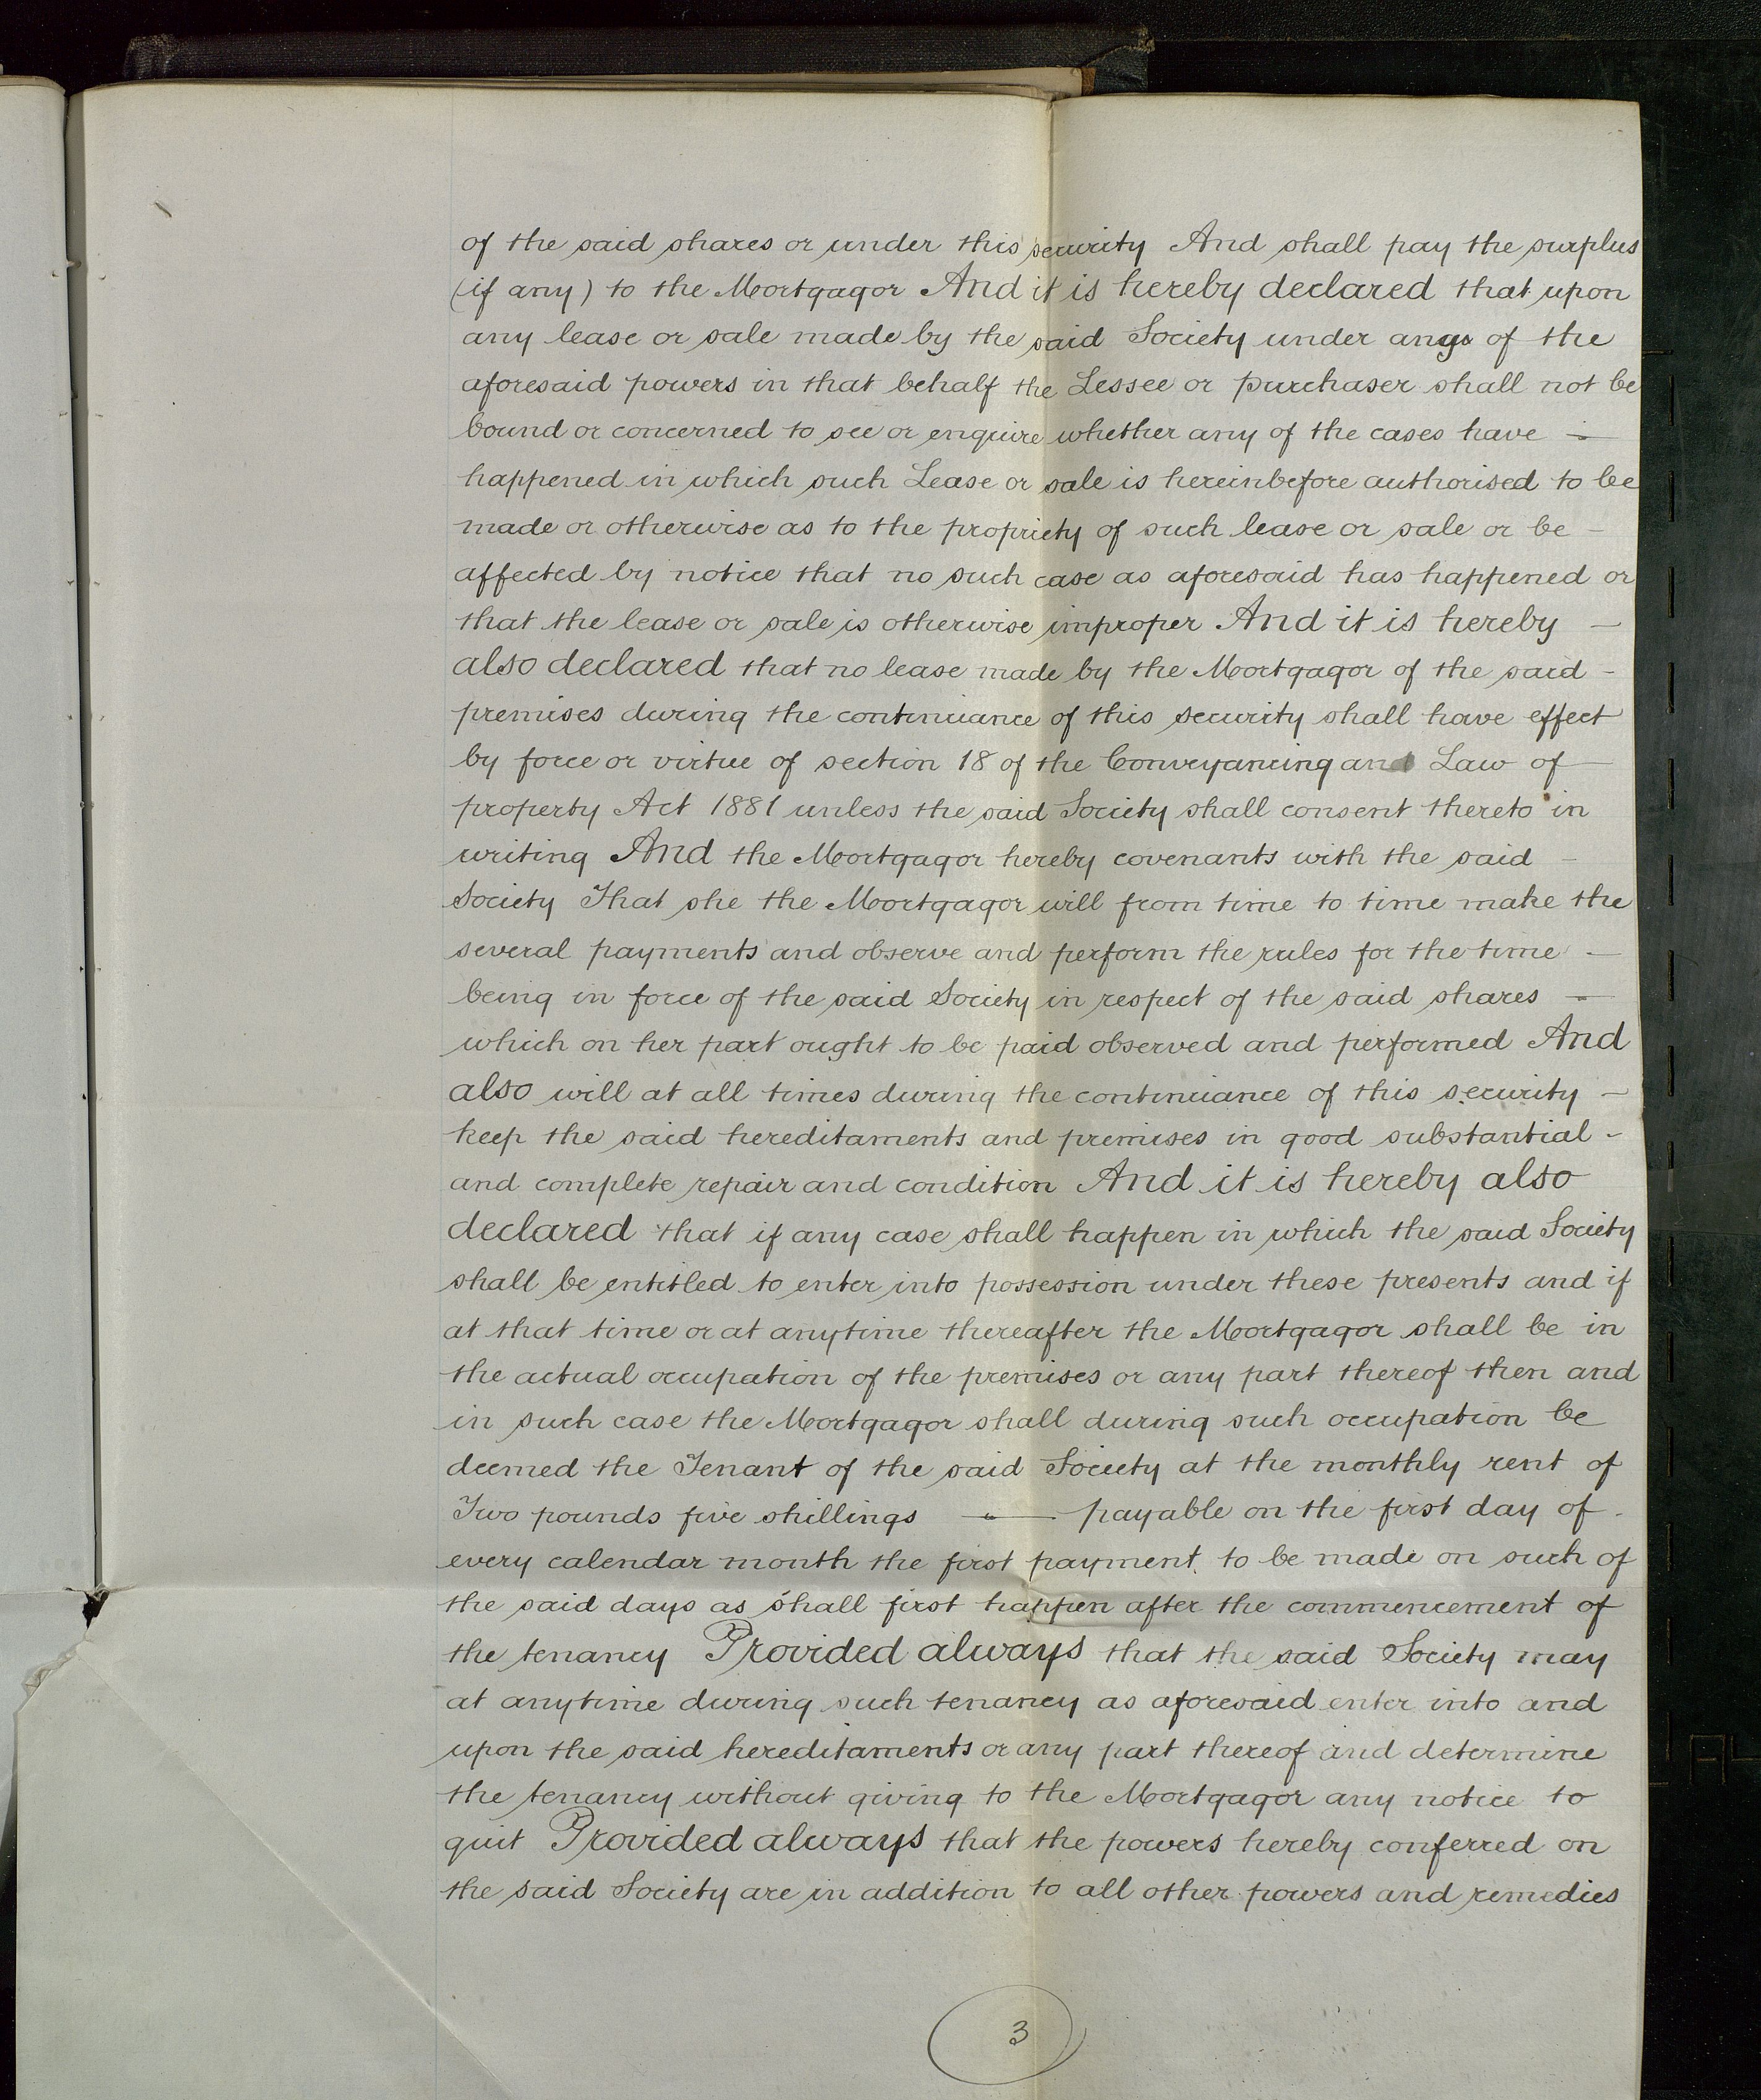 of the said shares or under this security And shall pay the surplus
(if any) to the Mortgagor And it is hereby declared that upon
any lease or sale made by the said Society under any of the
aforesaid powers in that behalf the Lessee or purchaser shall not be
bound or concerned to see or enquire whether any of the cases have —
happened in which such Lease or sale is hereinbefore authorised to be
made or otherwise as to the propriety of such lease or sale or be —
affected by notice that no such case as aforesaid has happened or
that the lease or sale is otherwise improper And it is hereby —
also declared that no lease made by the Mortgagor of the said —
premises during the continuance of this security shall have effect
by force or virtue of section 18 of the Conveyancing and Law of
property Act 1881 unless the said Society shall consent thereto in
writing And the Mortgagor hereby covenants with the said —
Society That she the Mortgagor will from time to time make the
several payments and observe and perform the rules for the time —
being in force of the said Society in respect of the said shares —
which on her part ought to be paid observed and performed And
also will at all times during the continuance of this security —
keep the said hereditaments and premises in good substantial —
and complete repair and condition And it is hereby also
declared that if any case shall happen in which the said Society
shall be entitled to enter into possession under these presents and if
at that time or at anytime thereafter the Mortgagor shall be in
the actual occupation of the premises or any part thereof then and
in such case the Mortgagor shall during such occupation be
deemed the Tenant of the said Society at the monthly rent of
Two pounds five shillings — payable on the first day of
every calendar month the first payment to be made on such of
the said days as shall first happen after the commencement of
the tenancy Provided always that the said Society may
at anytime during such tenancy as aforesaid enter into and
upon the said hereditaments or any part thereof and determine
the tenancy without giving to the Mortgagor any notice to
quit Provided always that the powers hereby conferred on
the said Society are in addition to all other powers and remedies
3